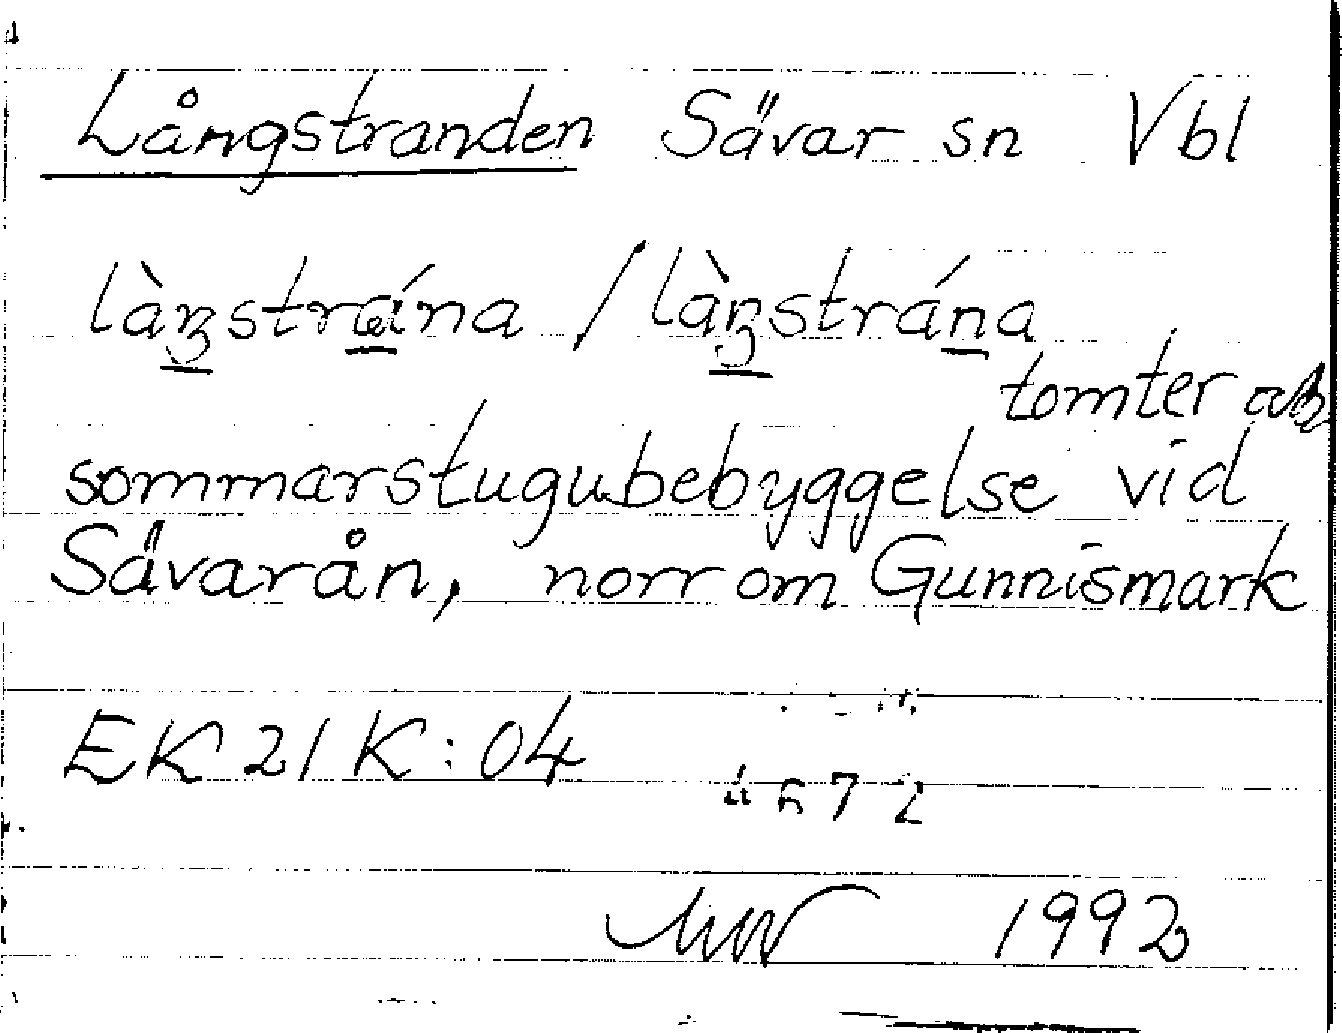 Långstranden Sävar sn Vbl
làŋstrána / làŋstrána
tomter
sommarstugubebyggelse vid
Sävarån, norr om Gunnismark
EK 21 K : 04
1992